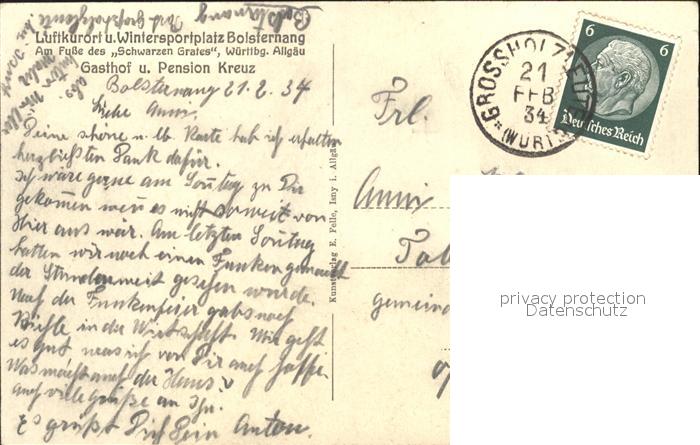 Bolsternang
Luftkurort u. Wintersportplatz Bolsternang
Am Fuße des „Schwarzen Grates", Württbg. Allgäu
Gasthof u. Pension Kreuz
Bolsternang 21.2.34
Liebe Anni.
Deine schöne u. lb. Karte hab ich erhalten
herzlichsten Dank dafür.
Ich wäre gerne am Sonntag zu Dir
gekommen wen es nicht so weit von
Hier aus wär. Am letzten Sonntag
hatten wir noch einen Funken gemacht
der Stundenweit gesehen wurde.
Nach der Funkenfeier gabs noch
Küchle in der Wirtschaft. Mir geht
es gut, was ich von Dir auch hoffe.
Was macht auch der Hans?
auch viele Grüße an Ihn.
Es grüßt Dich Dein Anton.
Kunstverlag E. Felle, Isny i. Allgäu
Frl.
Anni
gemeind
GROSSHOLZLEUTE
21
FEB
34
(WÜRTT
6 6
Deutsches Reich
privacy protection
Datenschutz